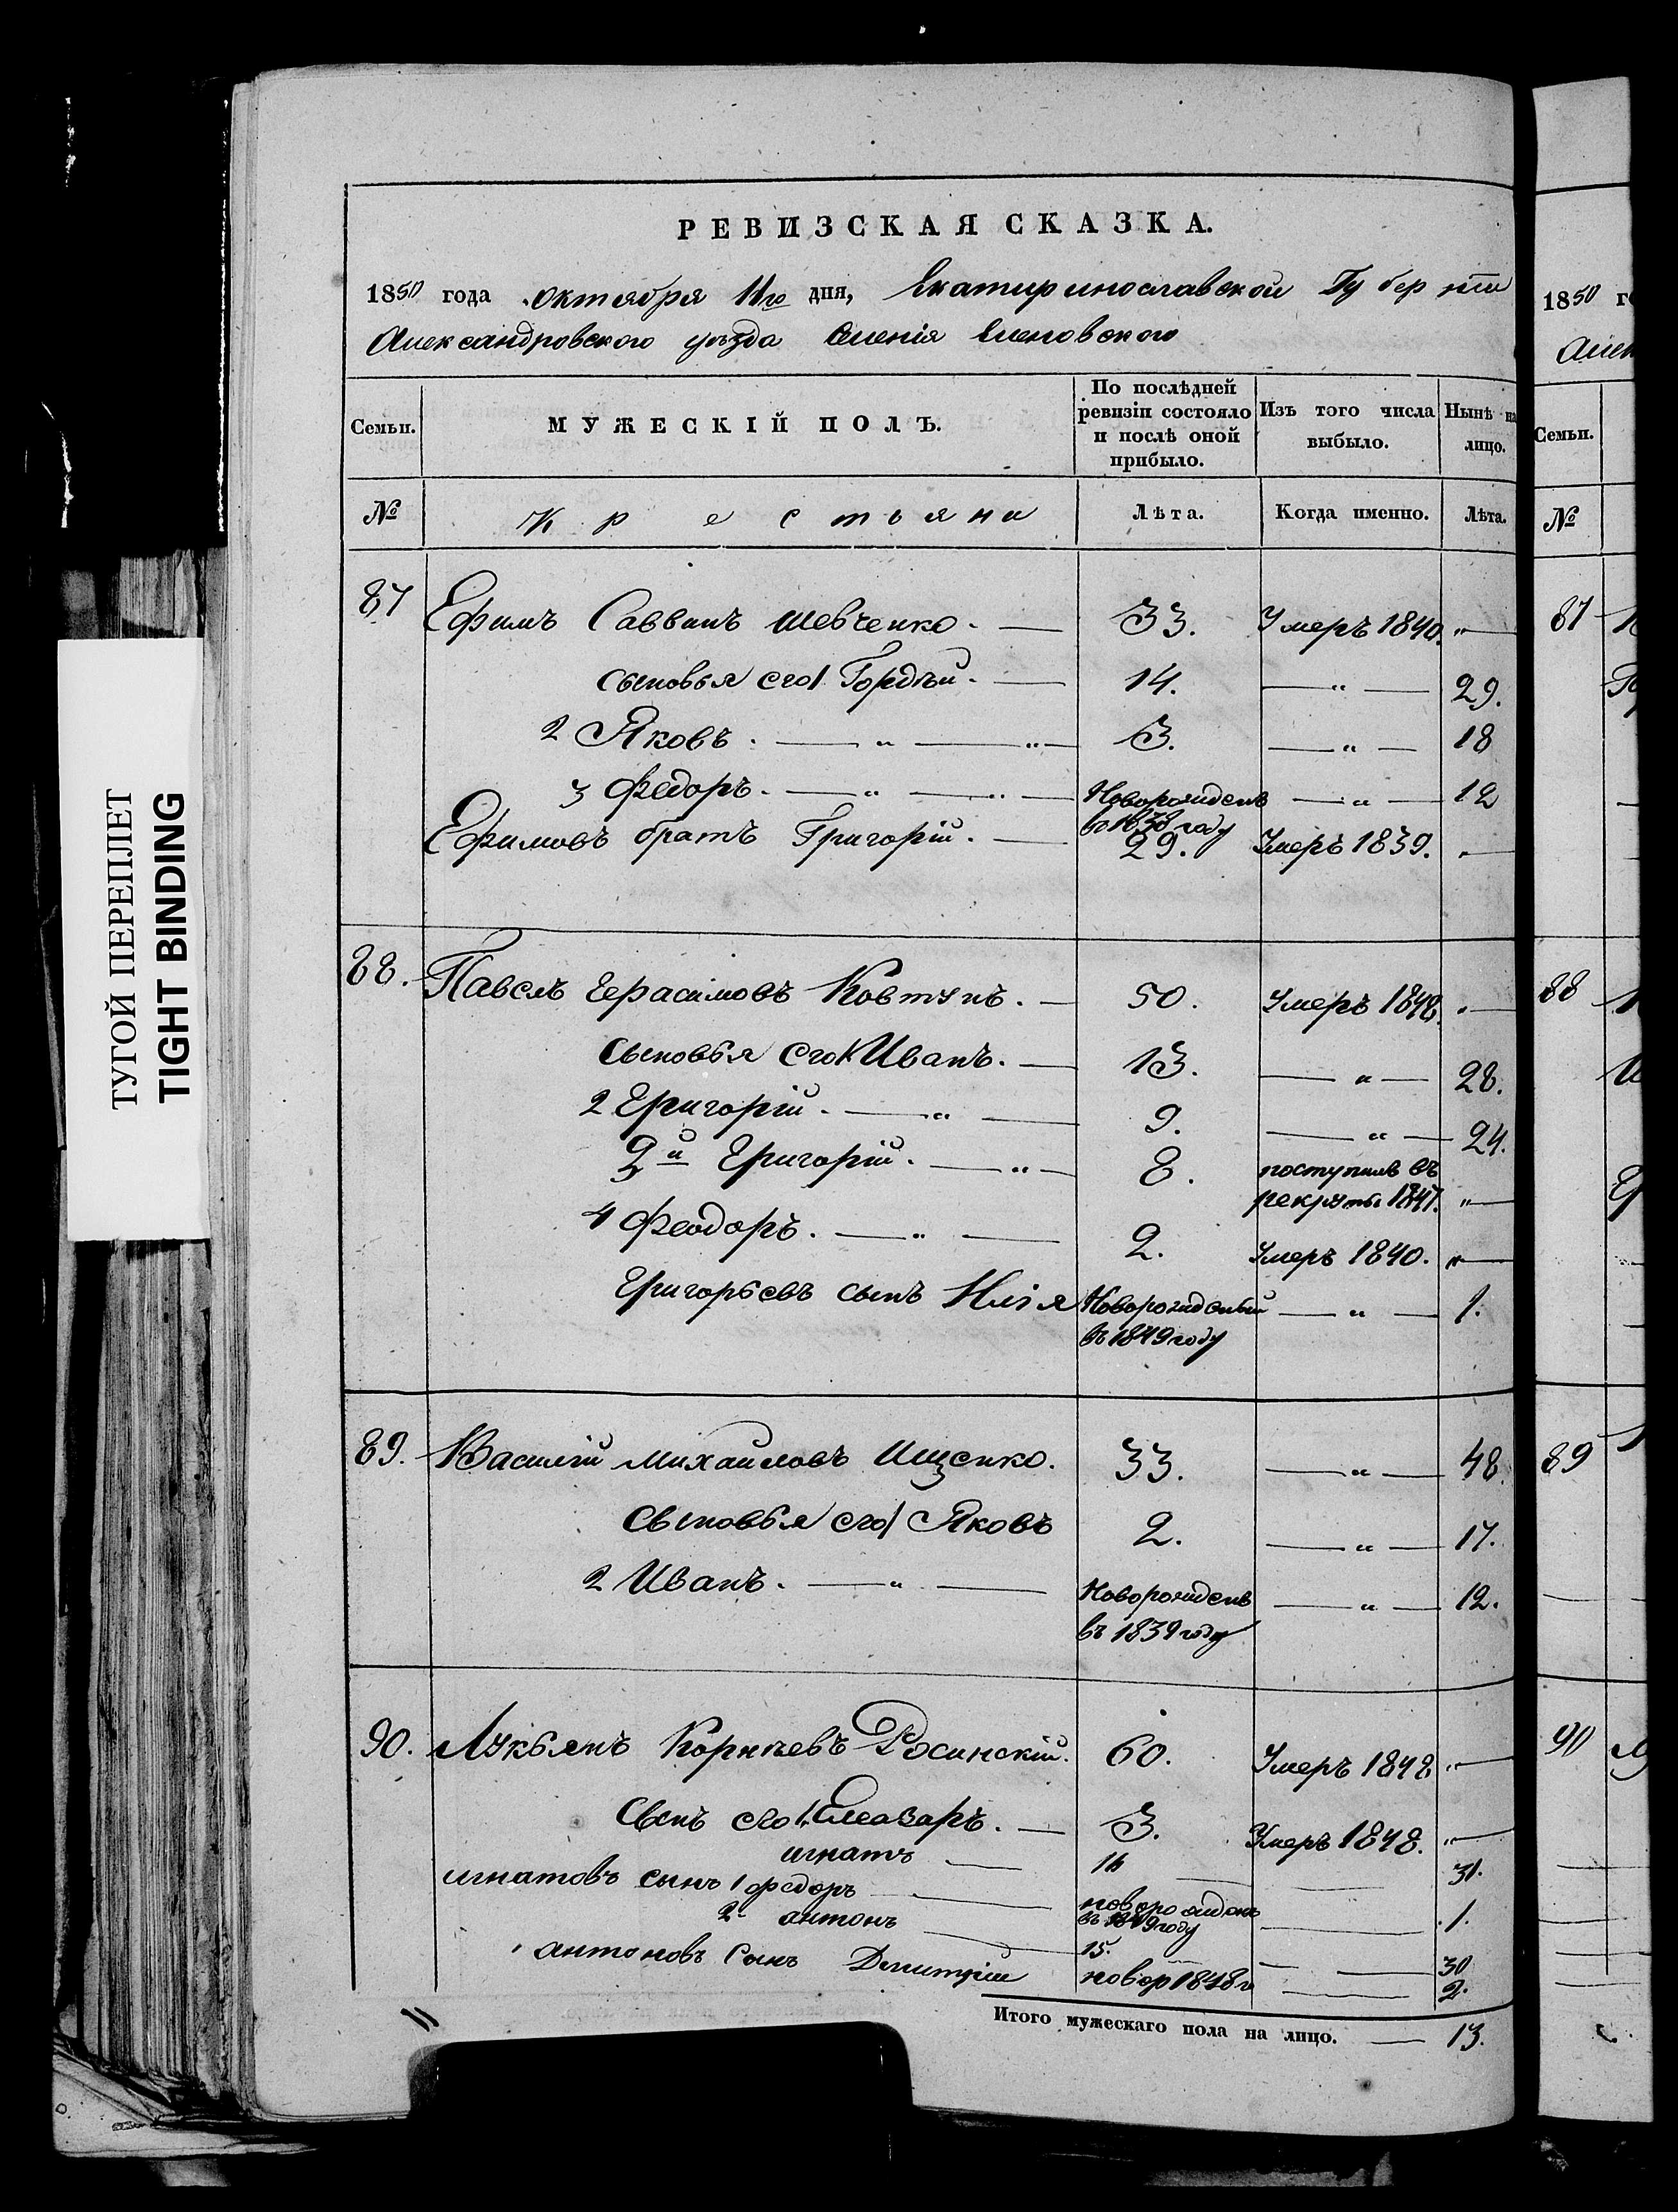 РЕВИЗСКАЯ СКАЗКА.
1850 года октября 11го дня, Екатиринославской Губернiи
Александровского уѣзда Еленовского
Семьи.
МУЖЕСКІЙ ПОЛЪ.
По послѣдней ревизіи состояло и послѣ оной прибыло.
Изъ того числа выбыло.
Нынѣ на лицо.
№ Крестьяни Лѣта. Когда именно. Лѣта.
87 Ефимъ Саввинъ Шевченко. — 33. Умеръ 1840. „—
сыновья его 1 Гордѣй. — 14. — „ — 29.
2 Яковъ. — „ — „ — 3. — „ — 18
3 Федоръ. — „ — „ — Новорожденъ въ 1838 году — „ — 12
Ефимовъ братъ Григорій. — 29. Умеръ 1839. „—
88. Павелъ Герасимовъ Ковтунъ. — 50. Умеръ 1848. „—
Сыновья его 1 Иванъ. — 13. — „ — 28.
2 Григорій. — „ — 9. — „ — 24.
3й Григорій. — „ — 8. поступилъ въ рекруты 1847. „—
4 Феодоръ. — „ — 2. Умеръ 1840. „—
Григорьевъ сынъ Илія Новорожденный въ 1849 году — „ — 1.
89. Василій Михайловъ Ищенко. 33. — „ — 48.
Сыновья его 1 Яковъ 2. — „ — 17.
2 Иванъ. — „ — Новорожденъ въ 1839 году — „ — 12.
90. Лукьянъ Корнѣевъ Росинскій. 60. Умеръ 1848 „—
Сынъ его 1. Елеазаръ. — 3. Умеръ 1848. „—
игнатъ — 16 — 31.
игнатовъ сынъ 1 федоръ — новорожденъ въ 1849 году — 1.
2 антонъ — 15. — 30
антоновъ Сынъ Дмитрій новор 1848 г — 2.
Итого мужескаго пола на лицо. — 13.
ТУГОЙ ПЕРЕПЛЕТ
TIGHT BINDING
1850
Семьи.
№
87
88
89
90